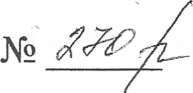 № 270 р